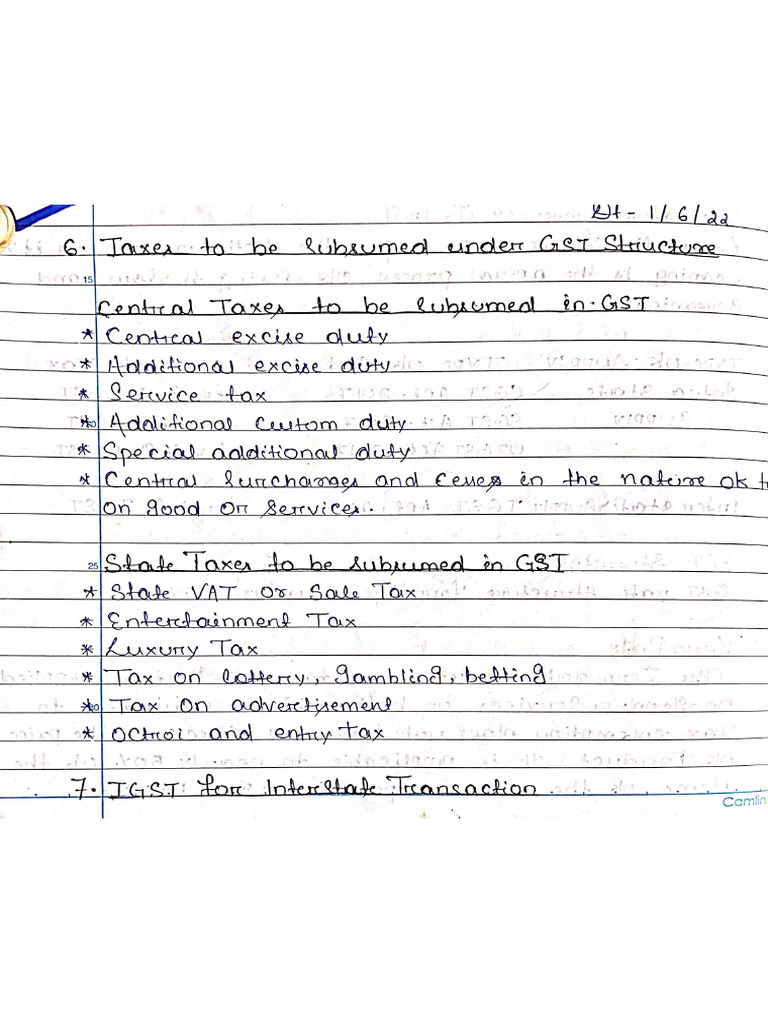 Dt - 1/6/22
6. Taxes to be subsumed under GST Structure
15
Central Taxes to be subsumed in GST
* Central excise duty
* Additional excise duty
* Service tax
* Additional custom duty
* Special additional duty
* Central surcharges and cesses in the nature of t
on good or services.
25 State Taxes to be subsumed in GST
* State VAT or Sale Tax
* Entertainment Tax
* Luxury Tax
* Tax on lottery, gambling, betting
* Tax on advertisement
* Octroi and entry tax
7. IGST for Interstate Transaction
Camlin